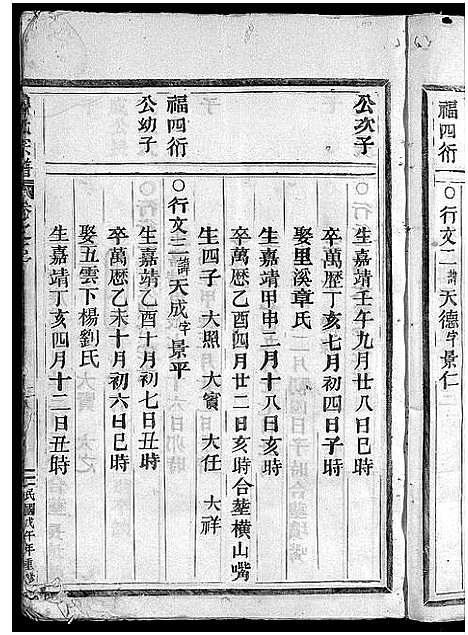 福四衍
○行文二諱天德字景仁
公次子
生嘉靖壬午九月廿八日巳時
卒萬歷丁亥七月初四日子時
娶里溪章氏
生嘉靖甲申二月十八日亥時
卒萬歷乙酉四月廿二日亥時合塟橫山嘴
生四子 大照 大賓 大任 大祥
福四衍
公幼子
○行文三諱天成字景平
生嘉靖乙酉十月初七日丑時
卒萬歷乙未十月初六日巳時
娶五雲下楊劉氏
生嘉靖丁亥四月十二日丑時
宗譜
民國戊午年重修